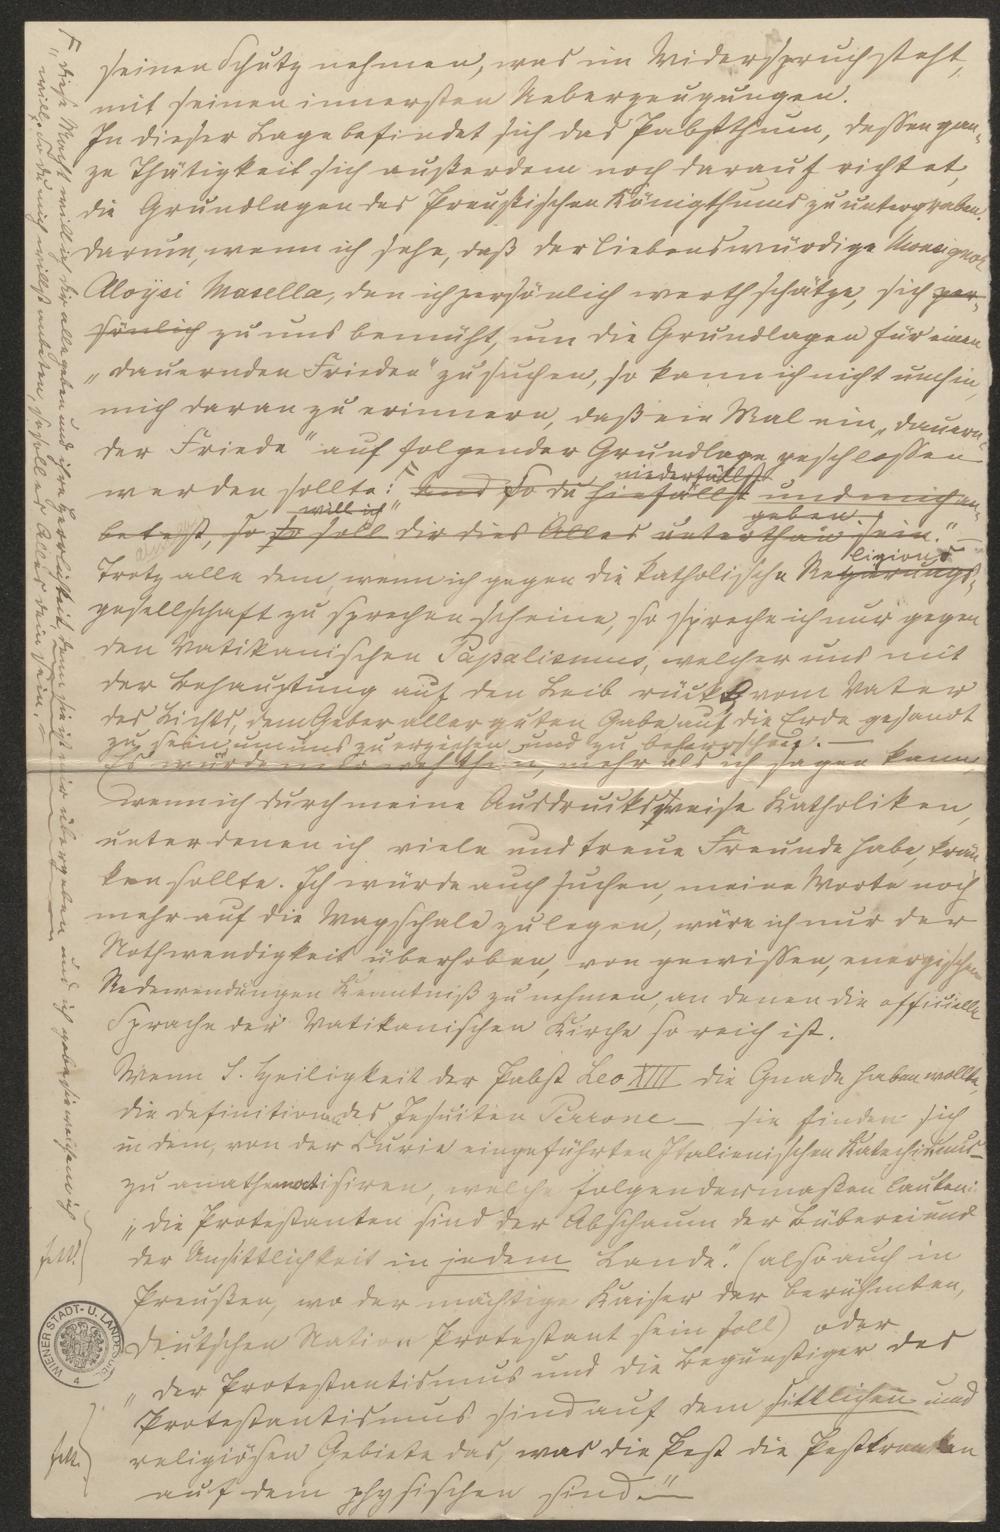 seinen Schutz nehmen, was im Widerspruch steht,
mit seinen innersten Ueberzeugungen.
In dieser Lage befindet sich das Pabstthum, dessen gan-
ze Thätigkeit sich außerdem noch darauf richtet,
die Grundlagen des Preußischen Königthums zu untergraben.
Darum, wenn ich sehe, daß der liebenswürdige Monsignor
Aloysi Masella, den ich persönlich werth schätze, sich per-
sönlich zu uns bemüht, um die Grundlagen für einen
„dauernden Frieden“ zu suchen, so kann ich nicht umhin,
mich daran zu erinnern, daß ein Mal ein „dauern-
der Friede“ auf folgender Grundlage geschlossen
niederfällst
werden sollte: „Und so du hinfällst und mich an-
will ich geben
betest, so so soll dir dies Alles unterthan sein.“ —
ligions
Trotz alle dem, wenn ich gegen die katholische Regierungs-
gesellschaft zu sprechen scheine, so spreche ich nur gegen
den Vatikanischen Papalismus, welcher uns mit
der Behauptung auf den Leib rückt, vom Vater
des Lichts, dem Geber aller guten Gabe auf die Erde gesandt
zu sein, um uns zu erziehen und zu beherrschen. —
Es würde mir weh thun, mehr als ich sagen kann,
wenn ich durch meine Ausdrucksweise Katholiken,
unter denen ich viele und treue Freunde habe, krän
ken sollte. Ich würde auch suchen, meine Worte noch
mehr auf die Wagschale zu legen, wäre ich nur der
Nothwendigkeit überhoben, von gewissen, energischen
Redewendungen Kenntniß zu nehmen, an denen die officielle
Sprache der Vatikanischen Kirche so reich ist.
Wenn S. Heiligkeit der Pabst Leo XIII die Gnade haben wollte,
die Definitionen des Jesuiten Perrone — sie finden sich
in dem, von der Curie eingeführten Italienischen Katechismus —
zu anathematisiren, welche folgendermaßen lauten:
„die Protestanten sind der Abschaum der Büberei und
der Unsittlichkeit in jedem Lande.“ (also auch in
Preußen, wo der mächtige Kaiser der berühmten,
deutschen Nation Protestant sein soll) oder
„der Protestantismus und die Begünstiger des
Protestantismus sind auf dem sittlichen und
religiösen Gebiete das, was die Pest die Pestkranken
auf dem physischen sind.“ —
F „Diese Macht will ich dir alle geben und ihre Herrlichkeit, denn sie ist mir übergeben und ich gebe sie welchem ich
will. So du mich willst anbeten, so soll es Alles dein sein.“
fett.
fett.
WIENER STADT- U. LANDESBIBL
4